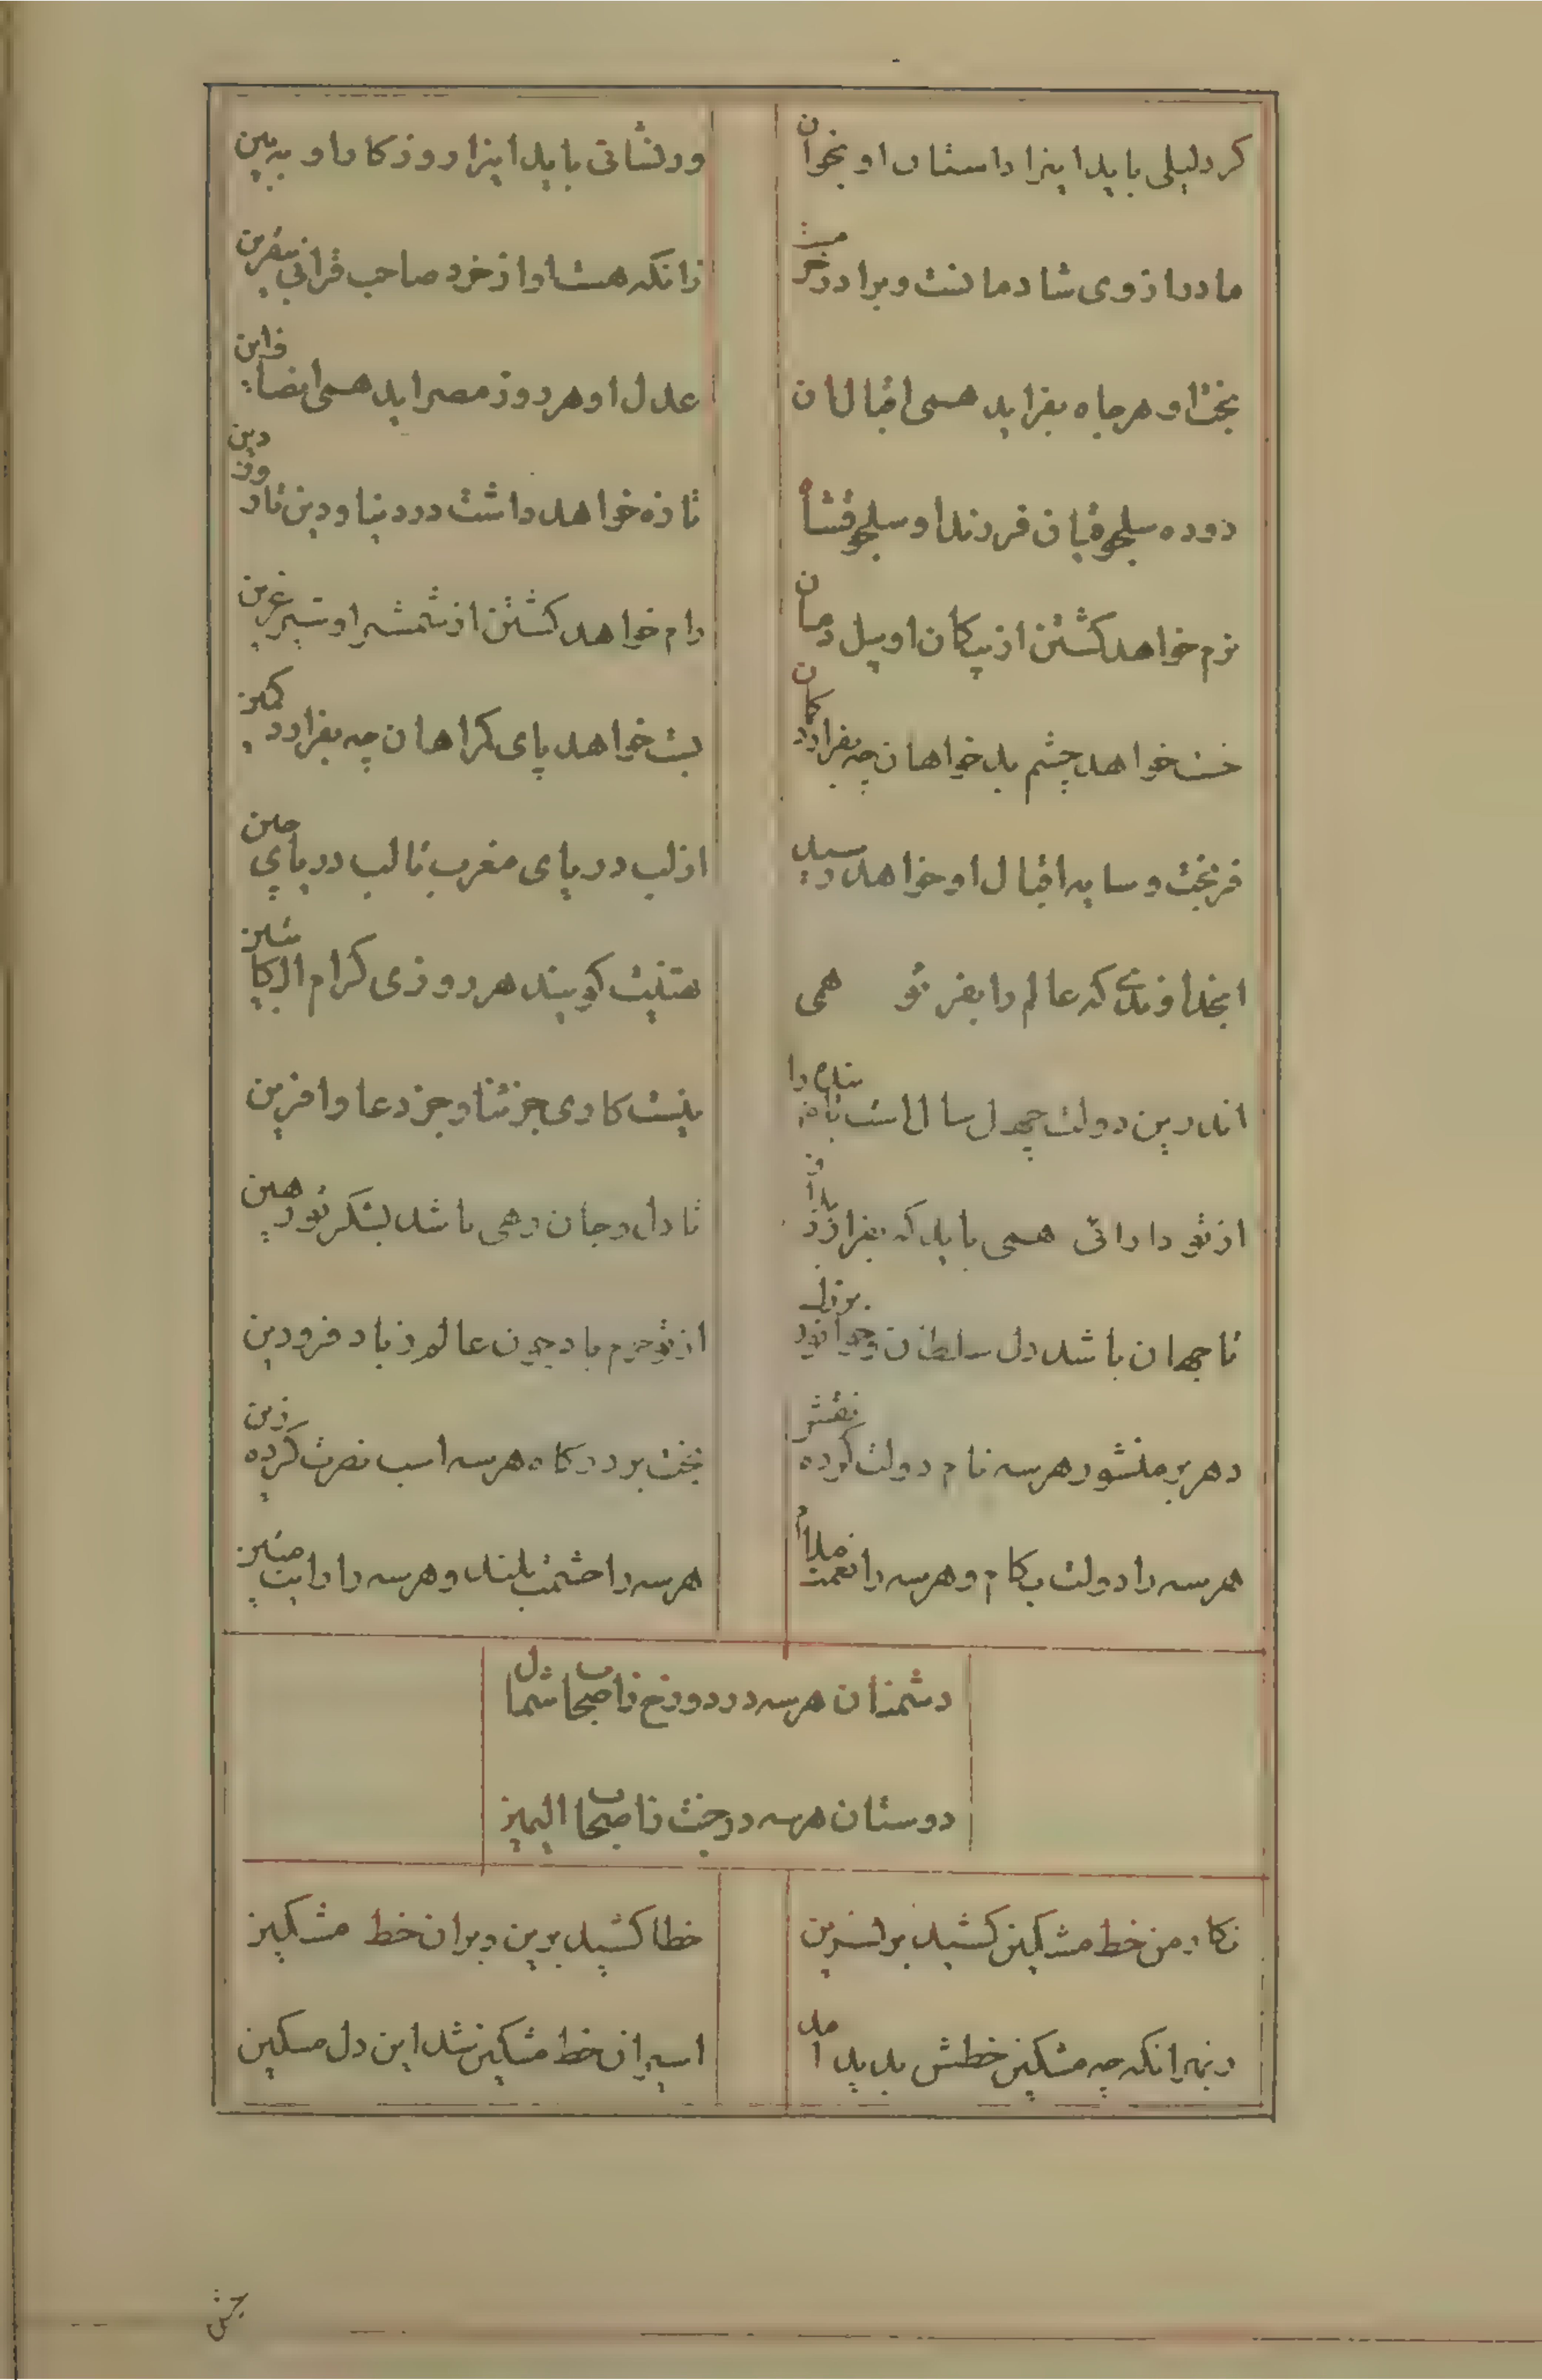 کر دلیلی باید اینرا داستان او بخوان
ور نشانی باید اینرا روزکار او ببین
مادر از وی شادمانست و برادر خرمست
زانکه هست او از خرد صاحب قرانی بیقرین
بخت او هر جاه بفزاید همی اقبال ان
عدل او هر روز مصر اید همی انصاف این
دوده سلجوقیان فرزند او سلجوقشاه
تازه خواهد داشت در دنیا و دین تا دور دین
نرم خواهد کشتن از پیکان او پیل دمان
رام خواهد کشتن از شمشیر او شیر عرین
خست خواهد چشم بدخواهان چه بفرازد کمان
بست خواهد پای کراهان چه بفرازد کمین
فر بخت و سایه اقبال او خواهد رسید
از لب دریای مغرب تا لب دریای چین
ایخداوندی که عالم را بفر تو همی
تهنیت کویند هر روزی کرام الکاتبین
اندرین دولت چهل سال است تا مر بنده را
نیست کاری جز ثنا و جز دعا و افرین
از تو دارائی همی باید که بفرازد
تا دل و جان رهی باشد بشکر تو رهین
تا جهان باشد دل سلطان و جوانود
از تو خرم باد چون عالم ز باد فرودین
دهر بر منشور هرسه نام دولت کرده نقش
بخت بر درکاه هرسه اسب نصرت کرده زین
هرسه را دولت بکام و هرسه را نعمت مدام
هرسه را حشمت بلند و هرسه را رایت متین
دشمنان هرسه در دوزخ ز اصحاب شمال
دوستان هرسه در جنت ز اصحاب الیمین
نکار من خط مشکین کشید بر نسرین
خطا کشید برین و بران خط مشکین
درنیرانکه چه مشکین خطش پدید امد
اسیر ان خط مشکین شد این دل مسکین